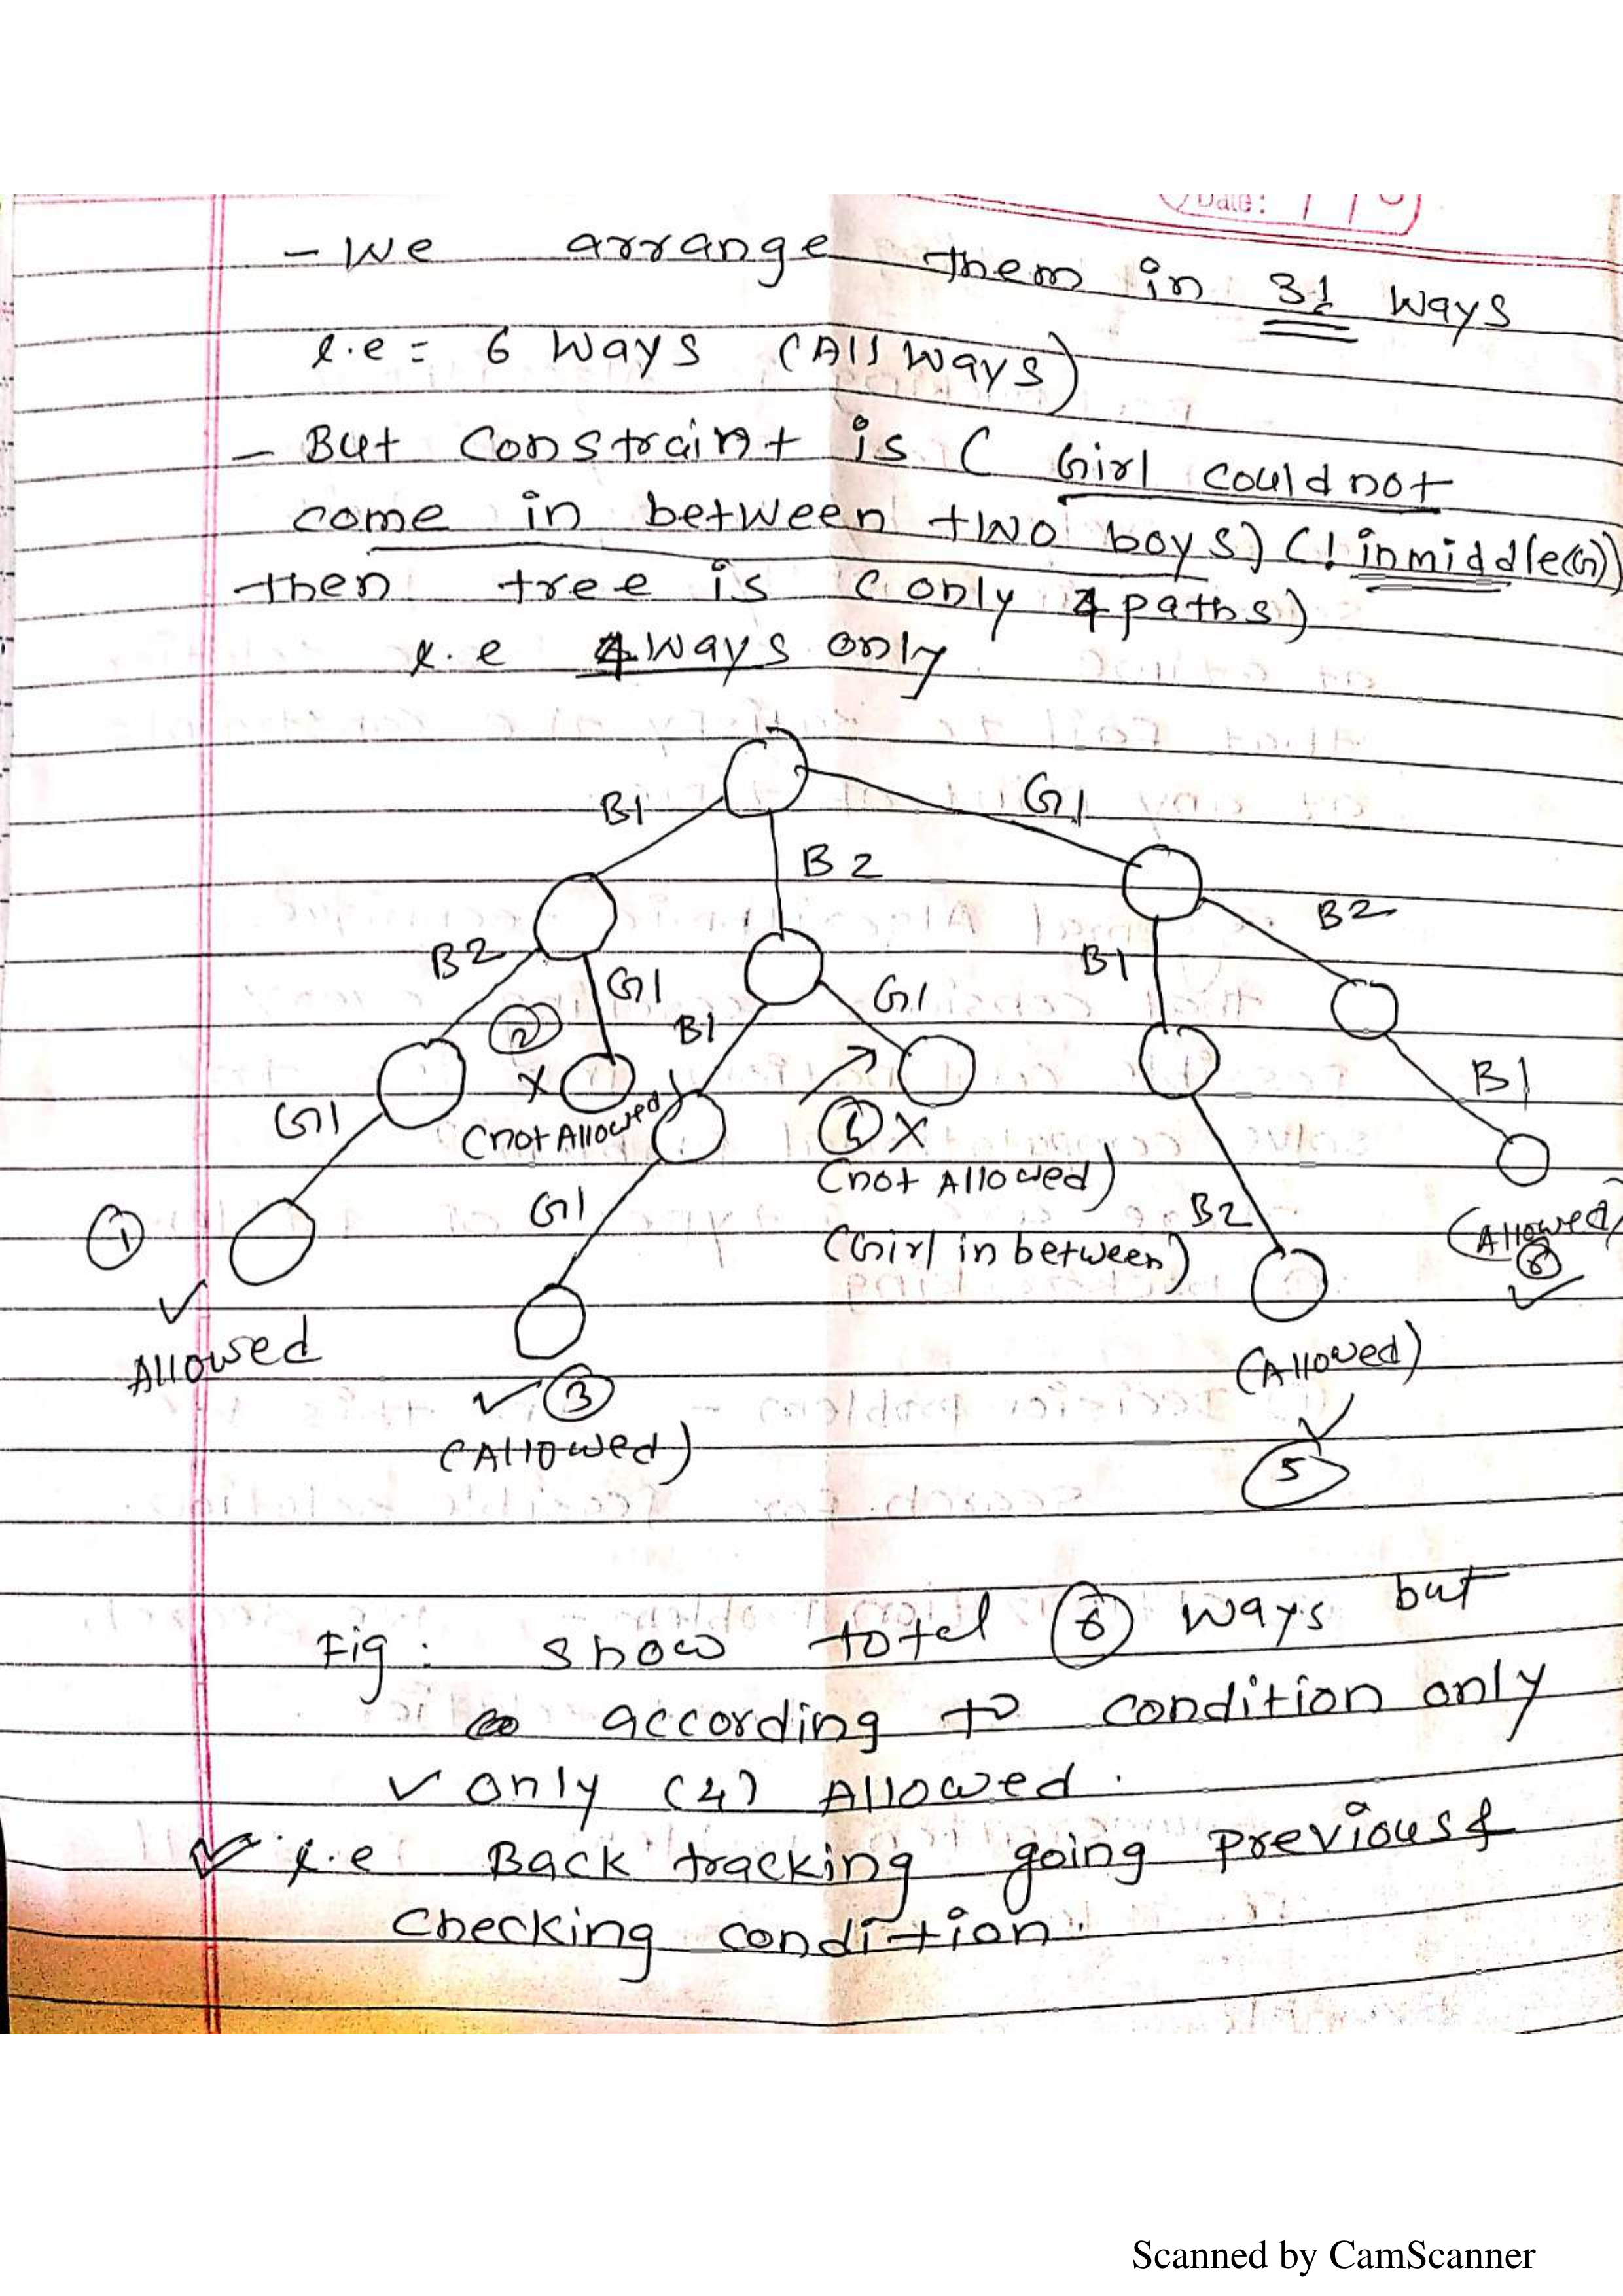 Date:
- We arrange them in 3! ways
i.e = 6 ways (All ways)
- But Constraint is ( Girl could not
come in between two boys) (! inmiddle(G))
then tree is (only 4 paths)
i.e 4 ways only
B1
G1
B2
B2
G1
B1
G1
B1
B2
2
X
(not Allowed)
G1
X
(not Allowed)
(Girl in between)
B1
1
Allowed
G1
3
(Allowed)
B2
(Allowed)
5
(Allowed)
Fig: show totel 6 ways but
according to condition only
✓ only (4) Allowed.
✓ i.e Back tracking going previous &
checking condition.
Scanned by CamScanner